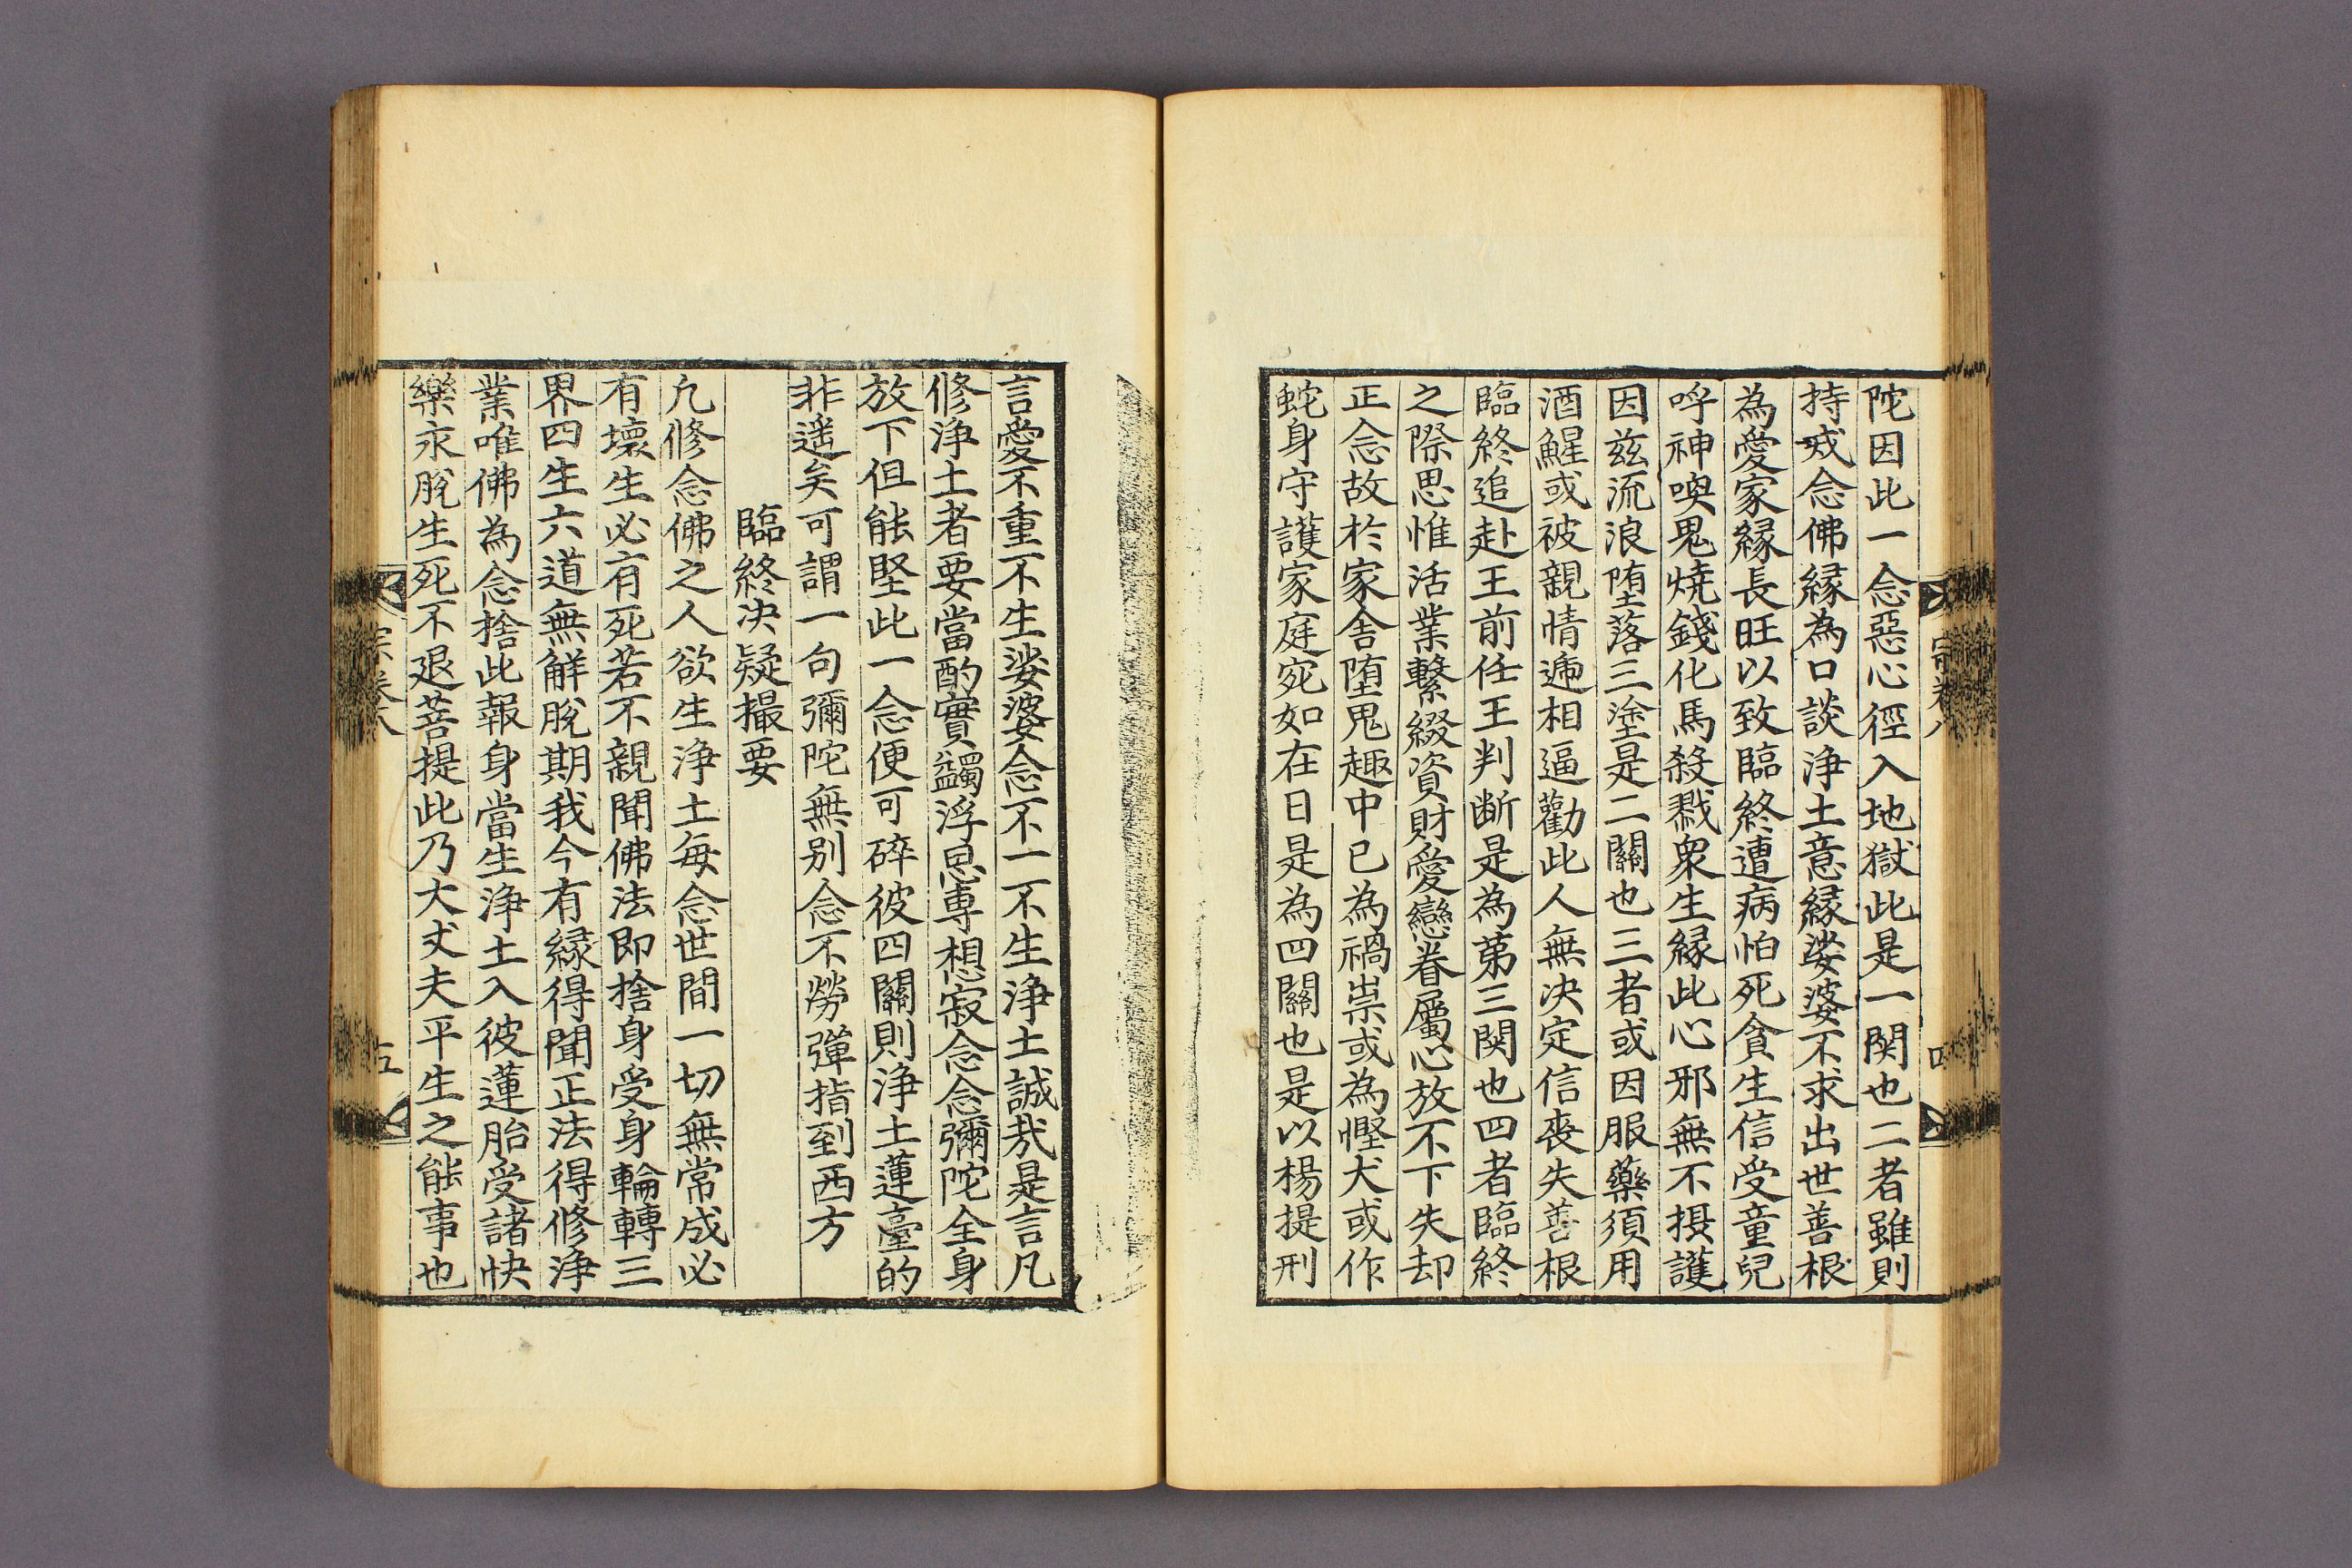 陀因此一念惡心徑入地獄此是一関也二者雖則
持戒念佛縁為口談浄土意縁娑婆不求出世善根
為愛家縁長旺以致臨終遭病怕死貪生信受童兒
呼神喚鬼燒錢化馬殺戮衆生縁此心邪無不摂護
因兹流浪堕落三塗是二關也三者或因服藥須用
酒鯹或被親情逓相逼勸此人無决定信喪失善根
臨終追赴王前任王判断是為第三関也四者臨終
之際思惟活業繫綴資財愛戀眷屬心放不下失却
正念故於家舍堕鬼趣中已為禍祟或為慳犬或作
蛇身守護家庭宛如在日是為四關也是以楊提刑
宗卷八
四
言愛不重不生娑婆念不一不生浄土誠㢤是言凡
修浄土者要當酌實蠲浮息専想寂念念彌陀全身
放下但能堅此一念便可碎彼四關則浄土蓮臺的
非遥矣可謂一句彌陀無别念不勞彈指到西方
臨終决疑撮要
凢修念佛之人欲生浄土每念世間一切無常成必
有壞生必有死若不親聞佛法即捨身受身輪轉三
界四生六道無觧脫期我今有縁得聞正法得修浄
業唯佛為念捨此報身當生浄土入彼蓮胎受諸快
樂永脫生死不退菩提此乃大丈夫平生之能事也
宗卷八
五